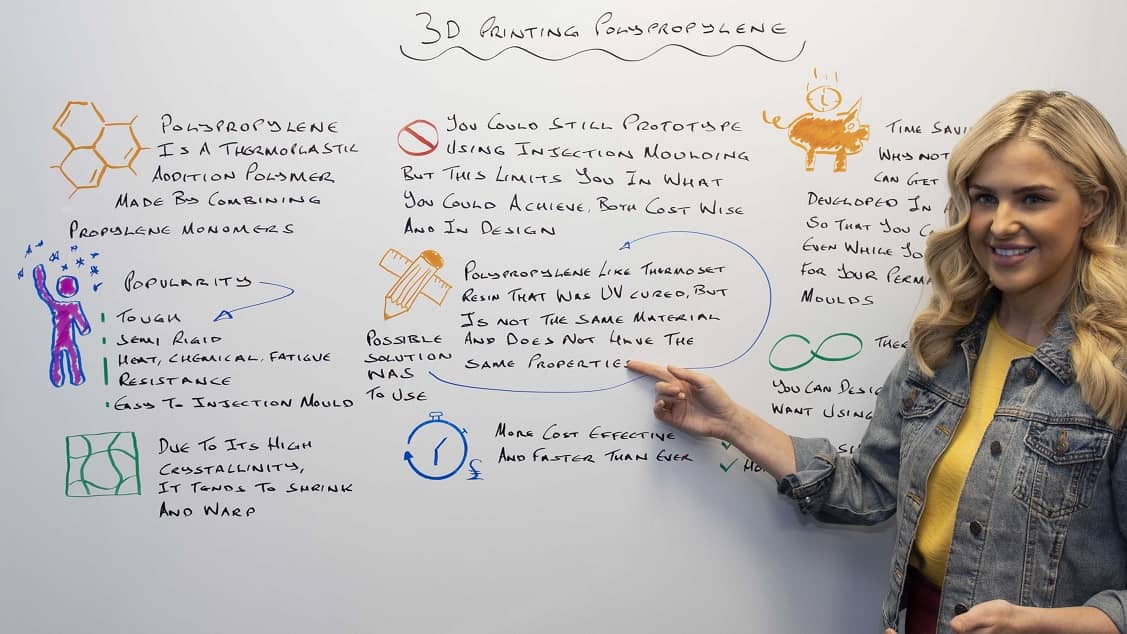 3D PRINTING POLYPROPYLENE
POLYPROPYLENE
IS A THERMOPLASTIC
ADDITION POLYMER
MADE BY COMBINING
PROPYLENE MONOMERS
POPULARITY
TOUGH
SEMI RIGID
HEAT, CHEMICAL, FATIGUE
RESISTANCE
EASY TO INJECTION MOULD
DUE TO ITS HIGH
CRYSTALLINITY,
IT TENDS TO SHRINK
AND WARP
YOU COULD STILL PROTOTYPE
USING INJECTION MOULDING
BUT THIS LIMITS YOU IN WHAT
YOU COULD ACHIEVE, BOTH COST WISE
AND IN DESIGN
POSSIBLE
SOLUTION
WAS
TO USE
POLYPROPYLENE LIKE THERMOSET
RESIN THAT WAS UV CURED, BUT
IS NOT THE SAME MATERIAL
AND DOES NOT HAVE THE
SAME PROPERTIES
MORE COST EFFECTIVE
AND FASTER THAN EVER
TIME
WHY NOT
CAN GET
DEVELOPED IN
SO THAT YOU
EVEN WHILE
FOR YOUR
MOULDS
YOU CAN
WANT USING